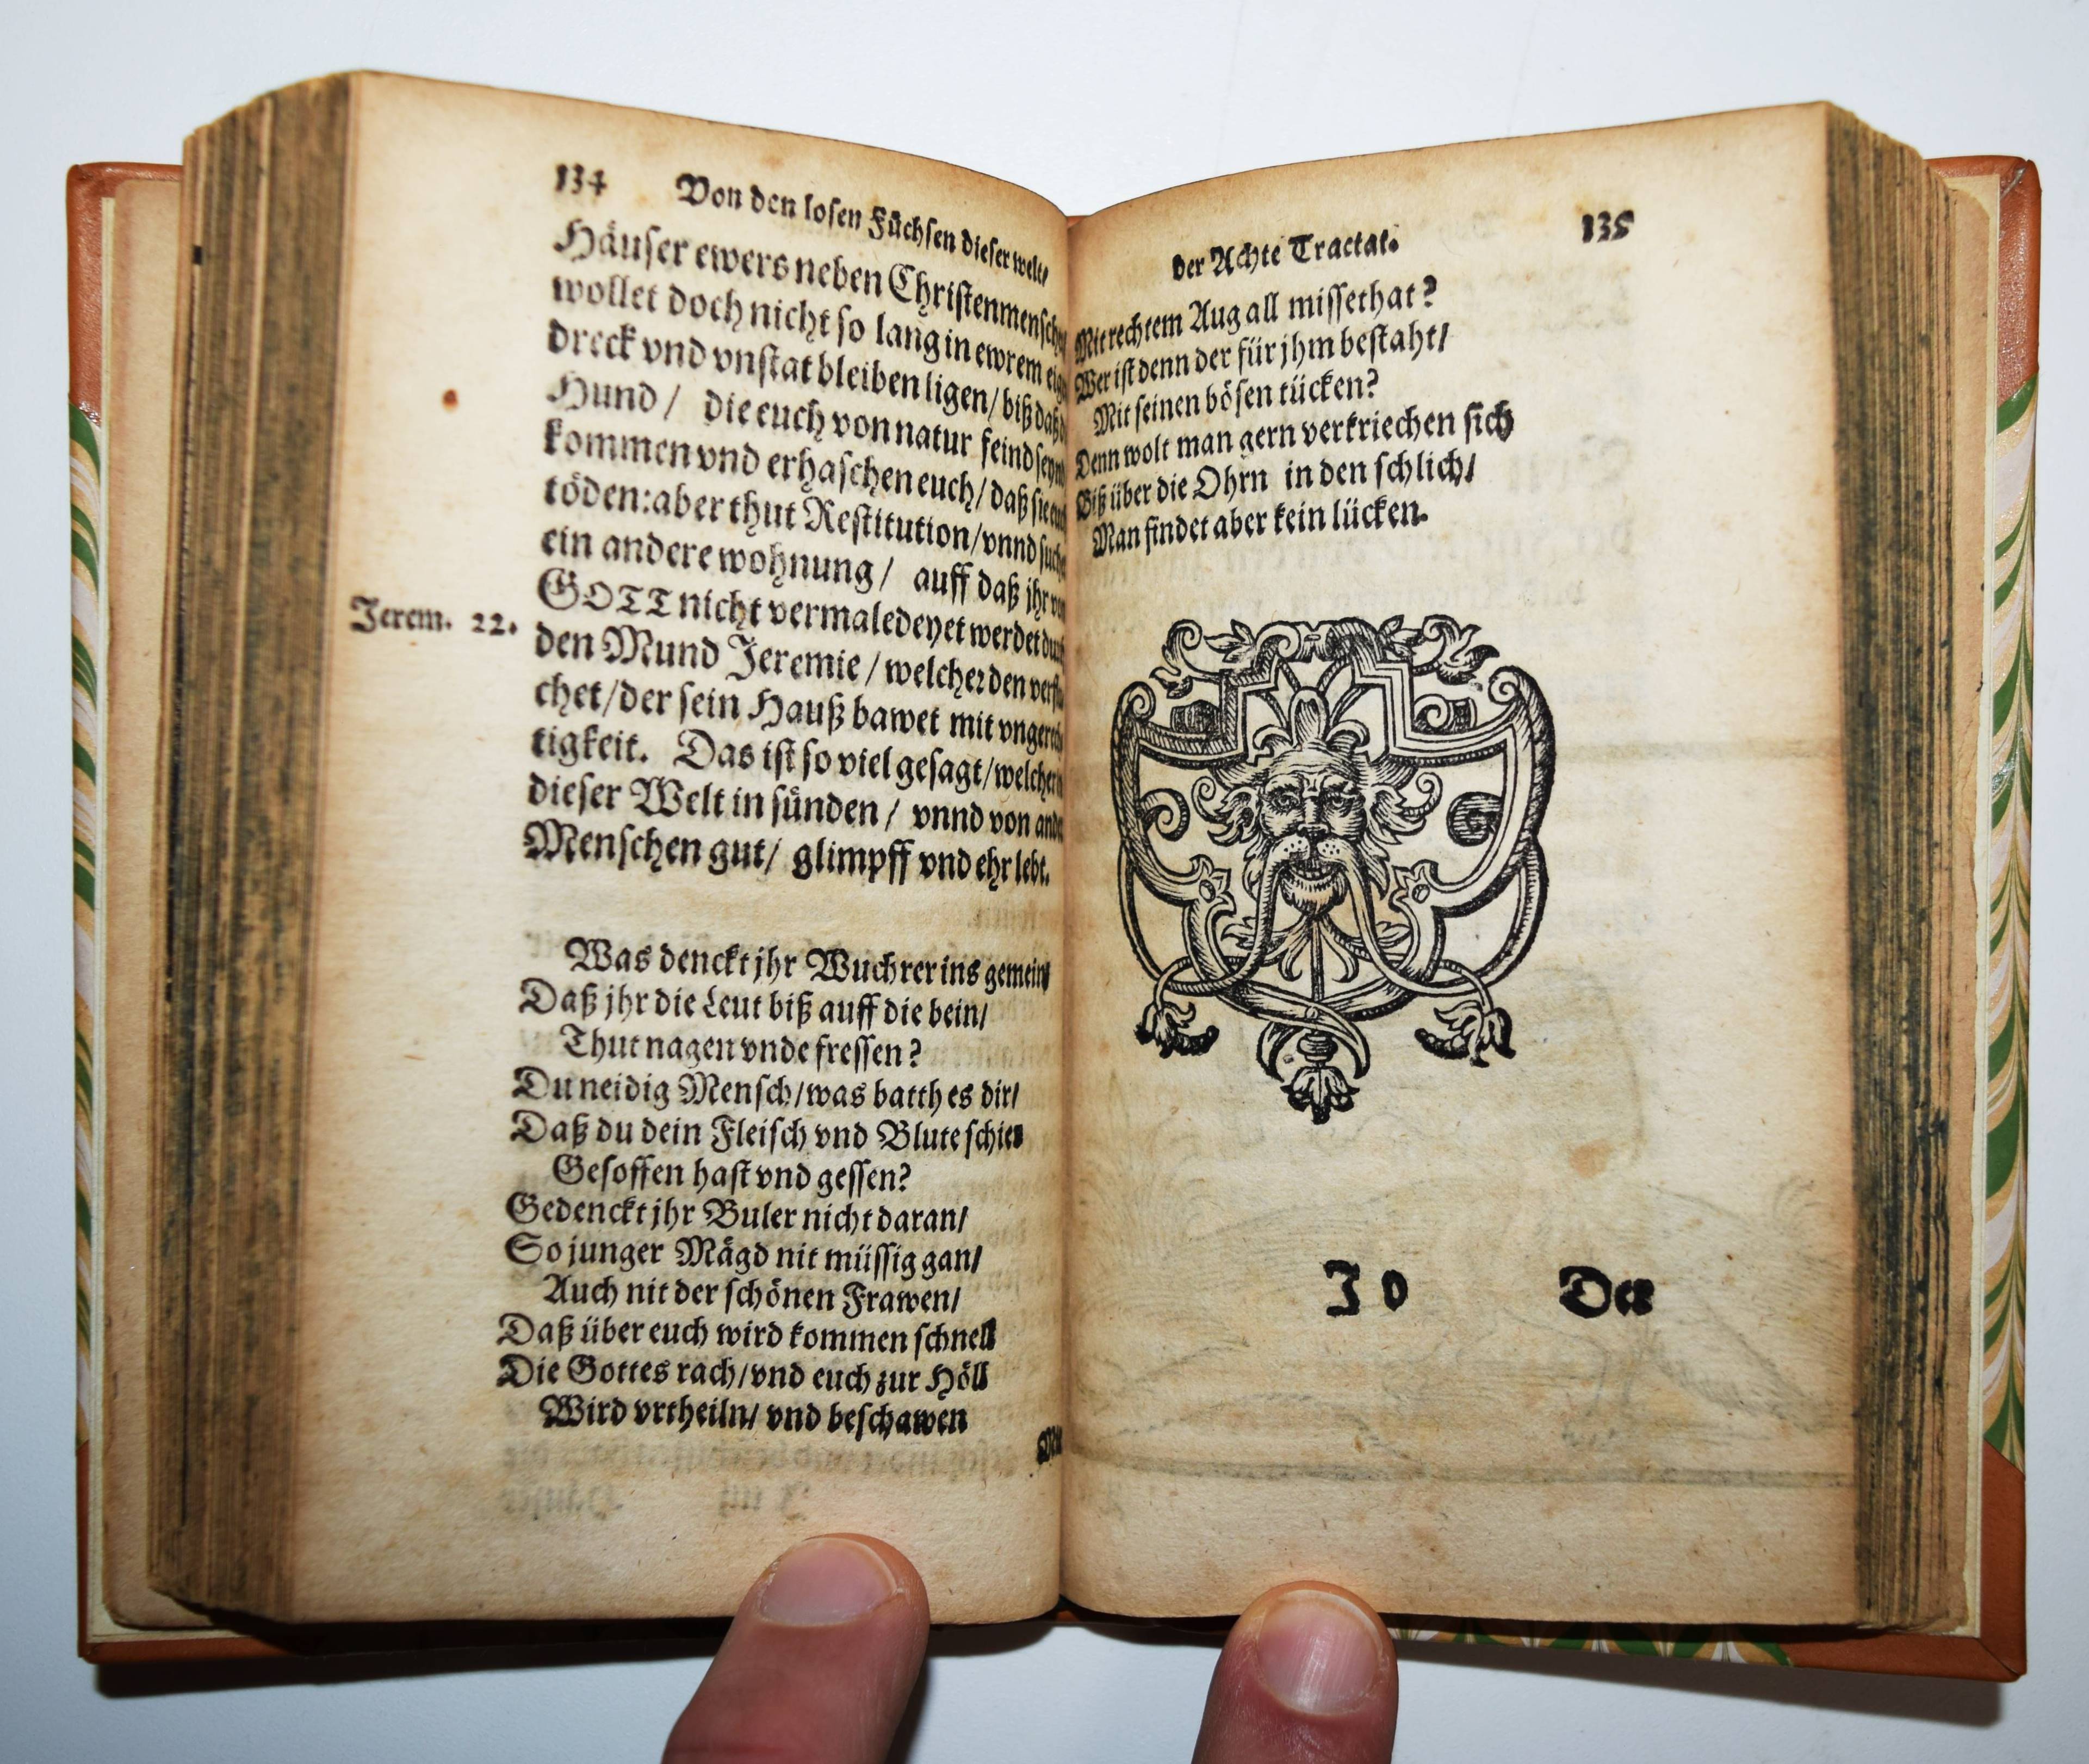 134 Von den losen Füchsen dieser welt/
Häuser ewers neben Christenmenschen
wollet doch nicht so lang in ewrem
dreck vnd vnstat bleiben ligen/ biß daß
Hund / die euch von natur feind seynd
kommen vnd erhaschen euch/ daß sie euch
töden: aber thut Restitution/ vnnd suchet
ein andere wohnung / auff daß jhr von
GOTT nicht vermaledeyet werdet durch
Jerem. 22.
den Mund Jeremie / welcher den verflu
chet/ der sein Hauß bawet mit vngerech
tigkeit. Das ist so viel gesagt/ welcher
dieser Welt in sünden / vnnd von
Menschen gut/ glimpff vnd ehr lebt.
Was denckt jhr Wuchrer ins gemein/
Daß jhr die Leut biß auff die bein/
Thut nagen vnde fressen?
Du neidig Mensch/ was batth es dir/
Daß du dein Fleisch vnd Blute schier
Gesoffen hast vnd gessen?
Gedenckt jhr Buler nicht daran/
So junger Mägd nit müssig gan/
Auch nit der schönen Frawen/
Daß über euch wird kommen schnell
Die Gottes rach/ vnd euch zur Höll
Wird vrtheiln/ vnd beschawen
Mit
der Achte Tractat. 135
Mit rechtem Aug all missethat?
Wer ist denn der für jhm bestaht/
Mit seinen bösen tücken?
Denn wolt man gern verkriechen sich
Biß über die Ohrn in den schlich/
Man findet aber kein lücken.
J v Der